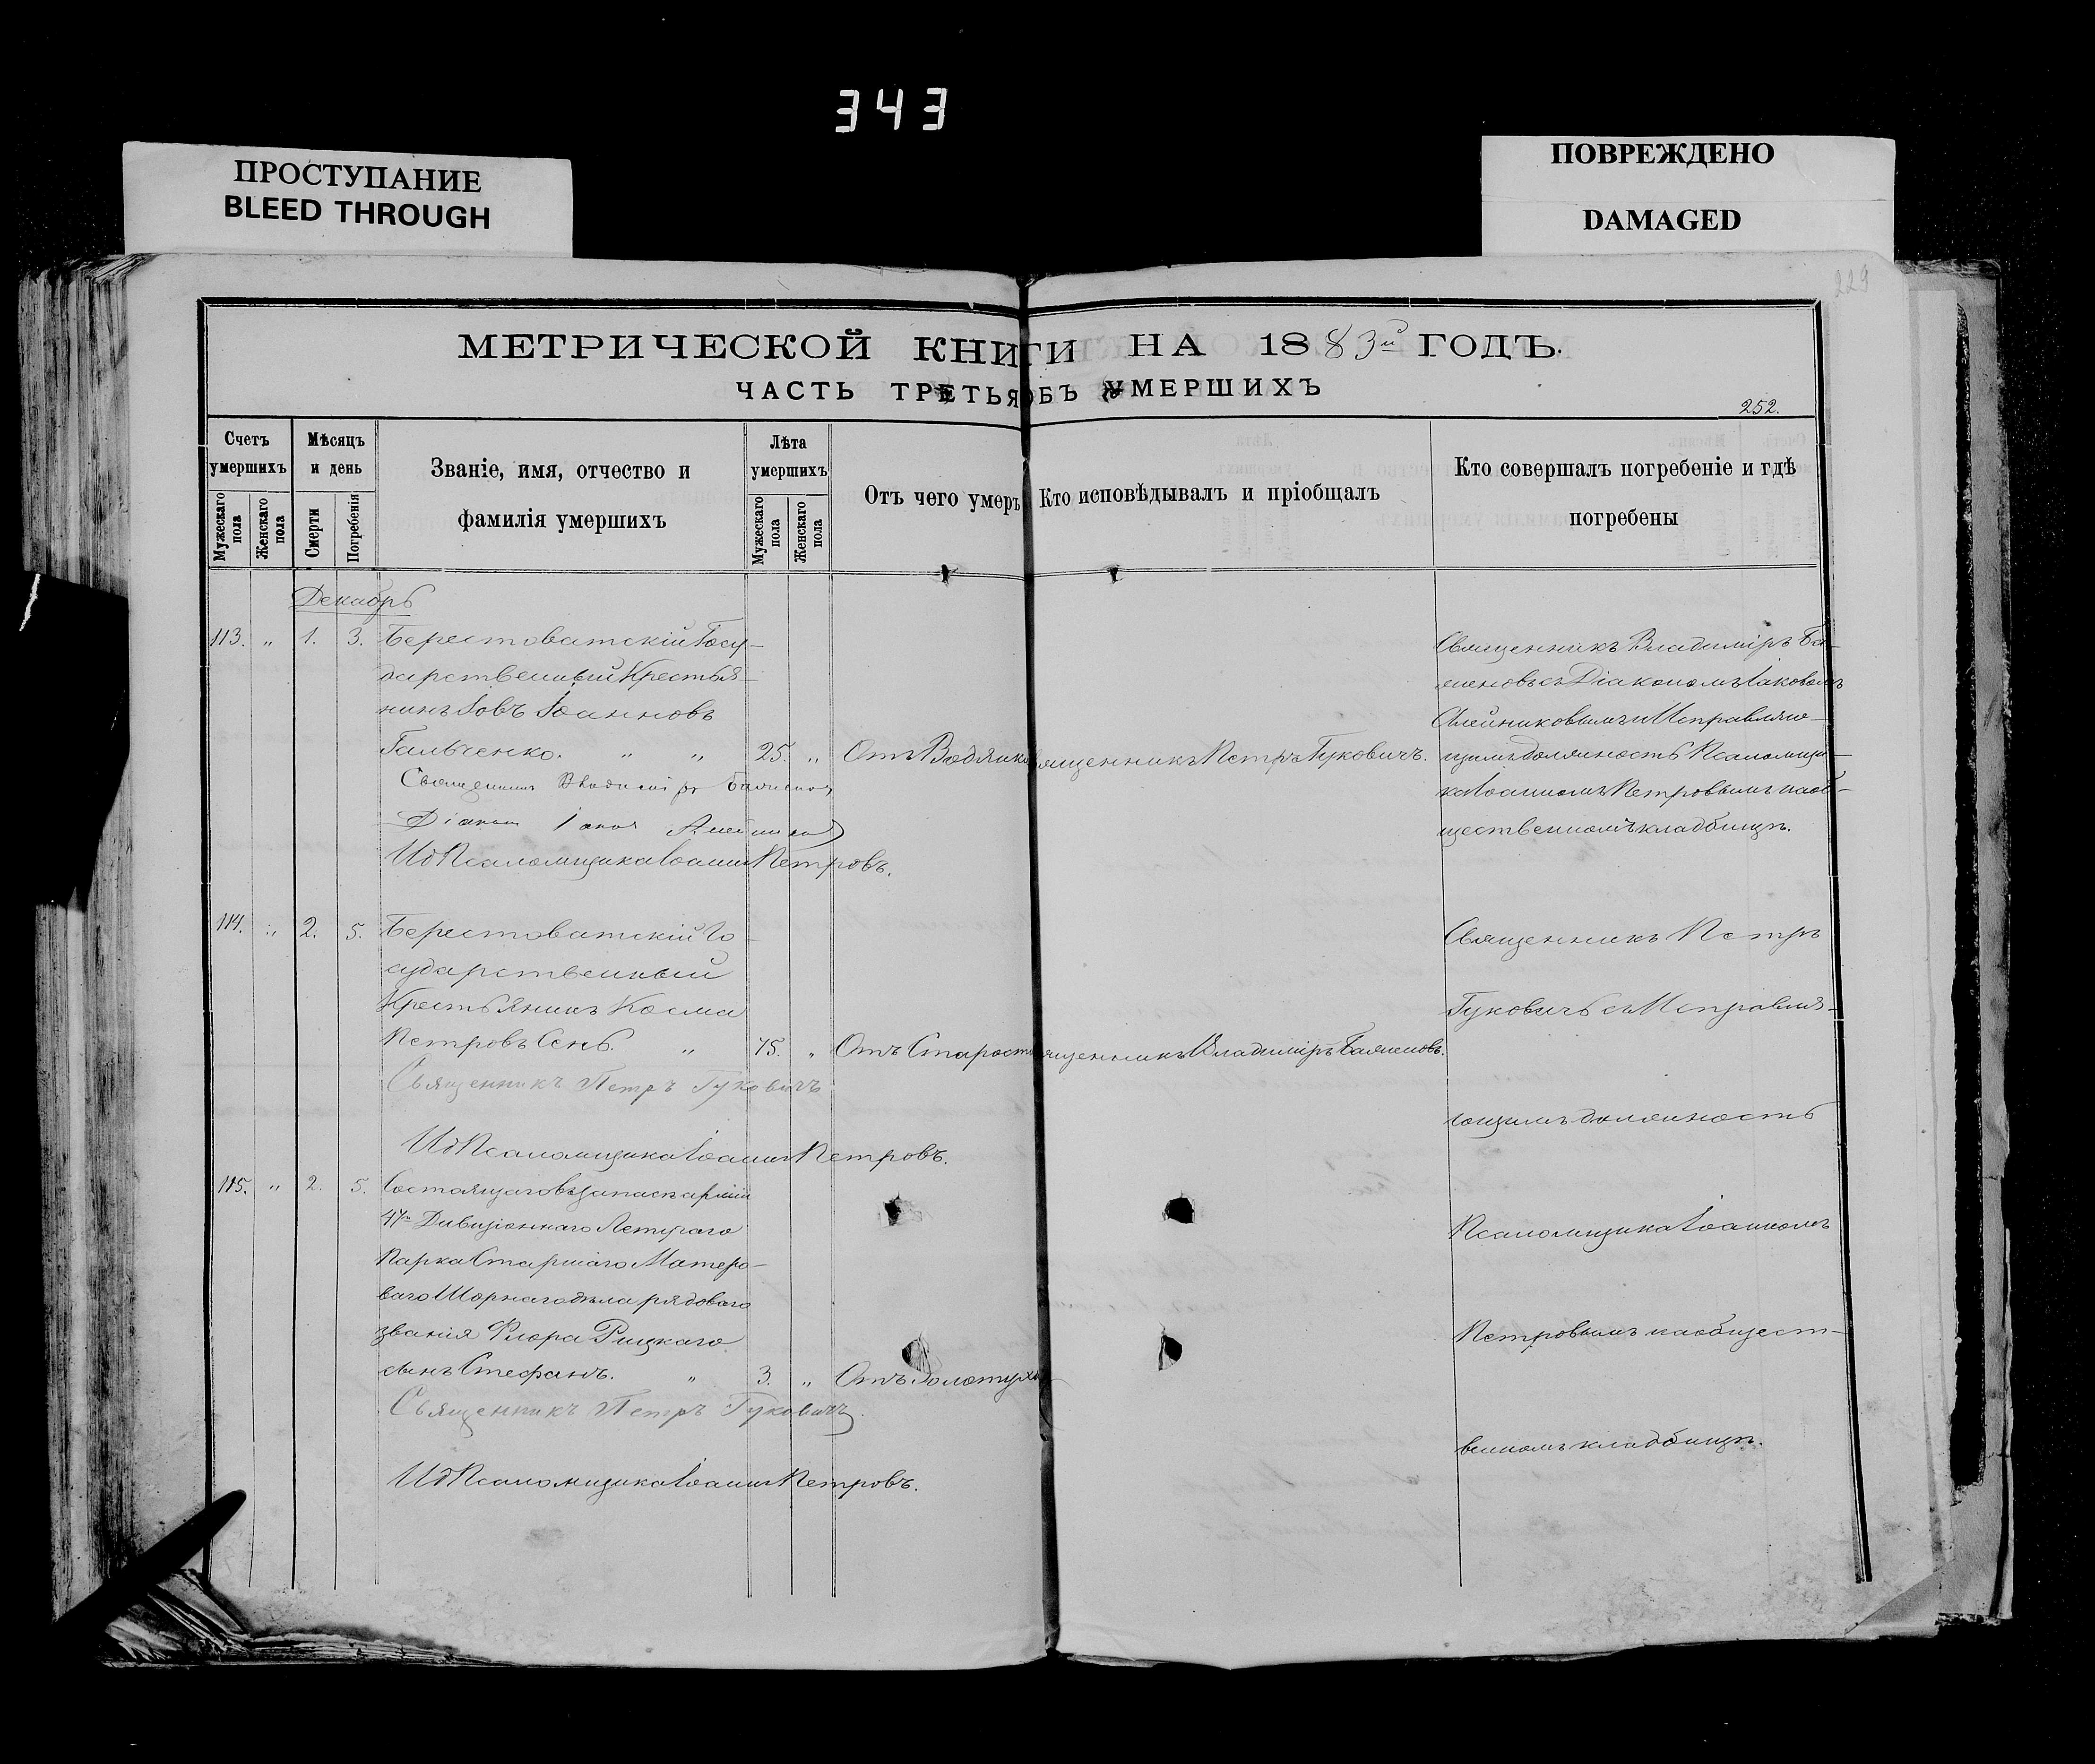 343
ПРОСТУПАНИЕ
BLEED THROUGH
ПОВРЕЖДЕНО
DAMAGED
229
МЕТРИЧЕСКОЙ КНИГИ НА 1883й ГОДЪ.
ЧАСТЬ ТРЕТЬЯ ОБЪ УМЕРШИХЪ
252.
Счетъ умершихъ
Мужескаго пола
Женскаго пола
Мѣсяцъ и день
Смерти
Погребенія
Званіе, имя, отчество и
фамилія умершихъ
Лѣта умершихъ
Мужескаго пола
Женскаго пола
Отъ чего умеръ
Кто исповѣдывалъ и пріобщалъ
Кто совершалъ погребеніе и гдѣ
погребены
Декабрь
113. „ 1. 3. Берестоватскій Госу-
дарственный Крестья-
нинъ Іовъ Іоанновъ
Гальченко. „ „ 25. „ Отъ Водянки Священникъ Петръ Гуковичъ.
Священникъ Владиміръ
Діаконъ Іаковъ
ИдПсаломщика Іоаннъ Петровъ.
Священникъ Владиміръ
Діакономъ Іаковомъ
Олейниковымъ и Исправляю-
щимъ должность Псаломщи-
ка Іоанномъ Петровымъ на об-
щественномъ кладбищѣ.
114. „ 2. 5. Берестоватскій Го-
сударственный
Крестьянинъ Косма
Петровъ Сень. „ 75. „ Отъ Старости Священникъ Владиміръ
Священникъ Петръ Гуковичъ
ИдПсаломщика Іоаннъ Петровъ.
115. „ 2. 5. Состоящаго въ запасѣ арміи
47го Дивизіоннаго Летучаго
Парка Старшаго Мастеро-
ваго Шорнаго дѣла рядоваго
званія Флора Рицкаго
сынъ Стефанъ. „ 3. „ Отъ Золотухи
Священникъ Петръ Гуковичъ
ИдПсаломщика Іоаннъ Петровъ.
Священникъ Петръ
Гуковичъ съ Исправля-
ющимъ должность
Псаломщика Іоанномъ
Петровымъ на общест-
венномъ кладбищѣ.